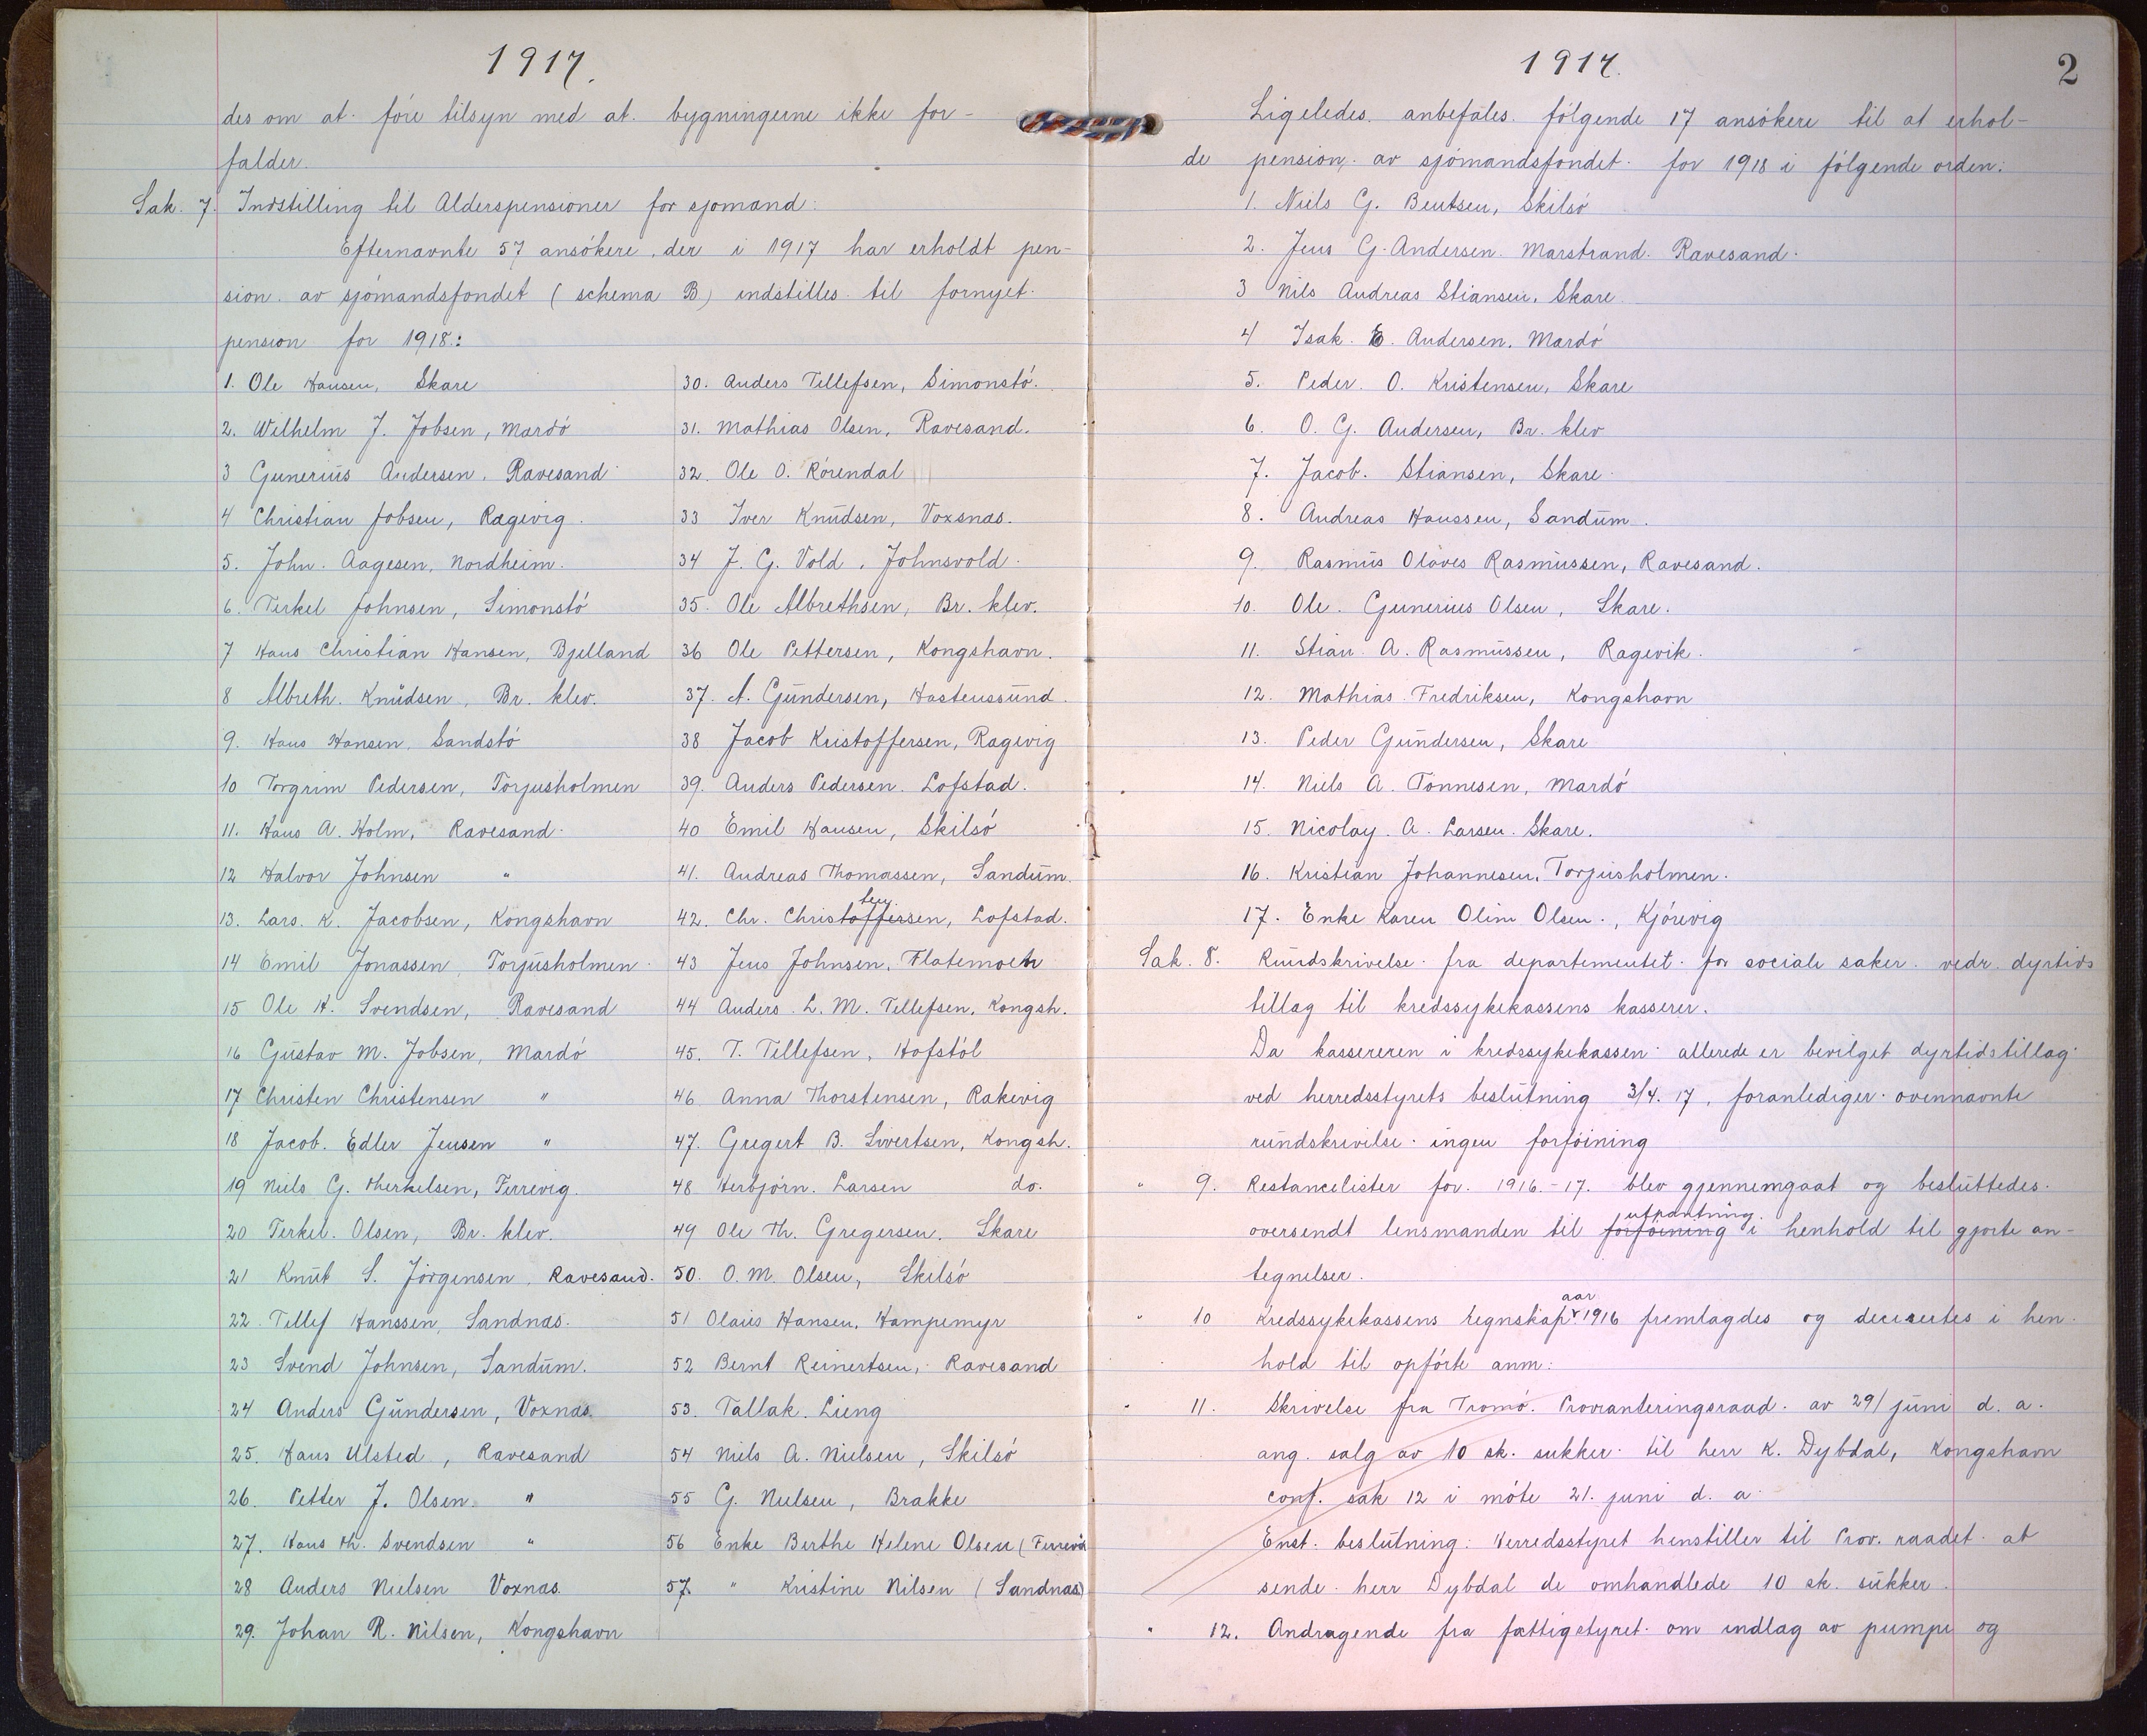 1917.
des om at føre tilsyn med at bygningerne ikke for-
falder.
Sak. 7. Indstilling til Alderspensioner for sjømænd:
Efternævnte 57 ansøkere, der i 1917 har erholdt pen-
sion av sjømandsfondet (schema B) indstilles til fornyet
pension for 1918:
1. Ole Hansen, Skare
2. Wilhelm J. Jobsen, Mærdø
3 Gunerius Andersen, Ravesand
4 Christian Jobsen, Rægevig.
5. John Aagesen, Nordheim.
6. Terkel Johnsen, Simonstø
7 Hans Christian Hansen, Bjelland
8 Albreth Knudsen, Br. klev.
9. Hans Hansen, Sandstø
10 Torgrim Pedersen, Torjusholmen
11. Hans A. Holm, Ravesand
12 Halvor Johnsen "
13. Lars. K. Jacobsen, Kongshavn
14 Emil Jonassen, Torjusholmen
15 Ole H. Svendsen, Ravesand
16 Gustav M. Jobsen, Mærdø
17 Christen Christensen "
18 Jacob. Edler Jensen "
19 Niels G. Therkelsen, Ferrevig.
20 Terkel. Olsen, Br. klev.
21 Knut S. Jørgensen, Ravesand.
22. Tellef Hanssen, Sandnæs.
23 Svend Johnsen, Sandum.
24 Anders Gundersen, Voxnæs.
25. Hans Ulsted, Ravesand
26. Petter J. Olsen "
27. Hans Th. Svendsen "
28 Anders Nielsen Voxnæs.
29. Johan R. Nilsen, Kongshavn
30. Anders Tellefsen, Simonstø.
31. Mathias Olsen, Ravesand.
32. Ole O. Rørendal
33 Iver Knudsen, Voxsnæs.
34 J. G. Vold, Johnsvold.
35. Ole Albrethsen, Br. klev.
36 Ole Pettersen, Kongshavn.
37. A. Gundersen, Hastenssund.
38 Jacob Kristoffersen, Rægevig
39. Anders Pedersen. Lofstad.
40 Emil Hansen, Skilsø
41. Andreas Thomassen, Sandum.
42. Chr. Christoffersen, Lofstad.
43 Jens Johnsen, Flatemoen
44 Anders L. M. Tellefsen, Kongsh.
45. T. Tellefsen, Hofstøl
46. Anna Thorstensen, Rækevig
47. Gregert B. Sivertsen, Kongsh.
48 Herbjørn. Larsen do.
49 Ole Th. Gregersen. Skare
50. O. M. Olsen, Skilsø
51 Olaus Hansen, Hampemyr
52 Bernt Reinertsen, Ravesand
53. Tallak. Lieng
54 Niels A. Nielsen, Skilsø
55 G. Nielsen, Brække
56 Enke Berthe Helene Olsen (
57. " Kristine Nilsen (Sandnæs)
1917.
2
Ligeledes anbefales følgende 17 ansøkere til at erhol-
de pension av sjømandsfondet for 1918 i følgende orden:
1. Niels G. Bentsen, Skilsø
2. Jens G. Andersen. Marstrand. Ravesand.
3 Nils Andreas Stiansen, Skare
4 Isak E. Andersen, Mærdø
5. Peder O. Kristensen, Skare
6. O. G. Andersen, Br. klev
7. Jacob. Stiansen, Skare
8. Andreas Hanssen, Sandum.
9. Rasmus Olaves Rasmussen, Ravesand.
10. Ole. Gunerius Olsen, Skare.
11. Stian A. Rasmussen, Rægevik.
12. Mathias Fredriksen, Kongshavn
13. Peder Gundersen, Skare
14. Niels A. Tønnesen, Mærdø
15. Nicolay. A. Larsen. Skare.
16. Kristian Johannesen, Torjusholmen.
17. Enke Karen Oline Olsen., Kjørevig
Sak. 8. Rundskrivelse fra departementet for sociale saker vedr. dyrtids
tillæg til kredssykekassens kasserer.
Da kassereren i kredssykekassen allerede er bevilget dyrtidstillæg
ved herredsstyrets beslutning 3/4. 17, foranlediger ovennævnte
rundskrivelse ingen forføining
" 9. Restancelister for 1916.-17. blev gjennemgaat og besluttedes
utpantning.
oversendt lensmanden til forføining i henhold til gjorte an-
tegnelser.
" 10 Kredssykekassens regnskap aar 1916 fremlagdes og decisertes i hen
hold til opførte anm:
" 11. Skrivelse fra Tromø. Provianteringsraad av 29/ juni d. a.
ang. salg av 10 sk. sukker til herr K. Dybdal, Kongshavn
conf. sak 12 i møte 21. juni d. a.
Enst. beslutning: Herredsstyret henstiller til Prov. raadet at
sende herr Dybdal de omhandlede 10 sk. sukker.
" 12. Andragende fra fattigstyret om indlæg av pumpe og